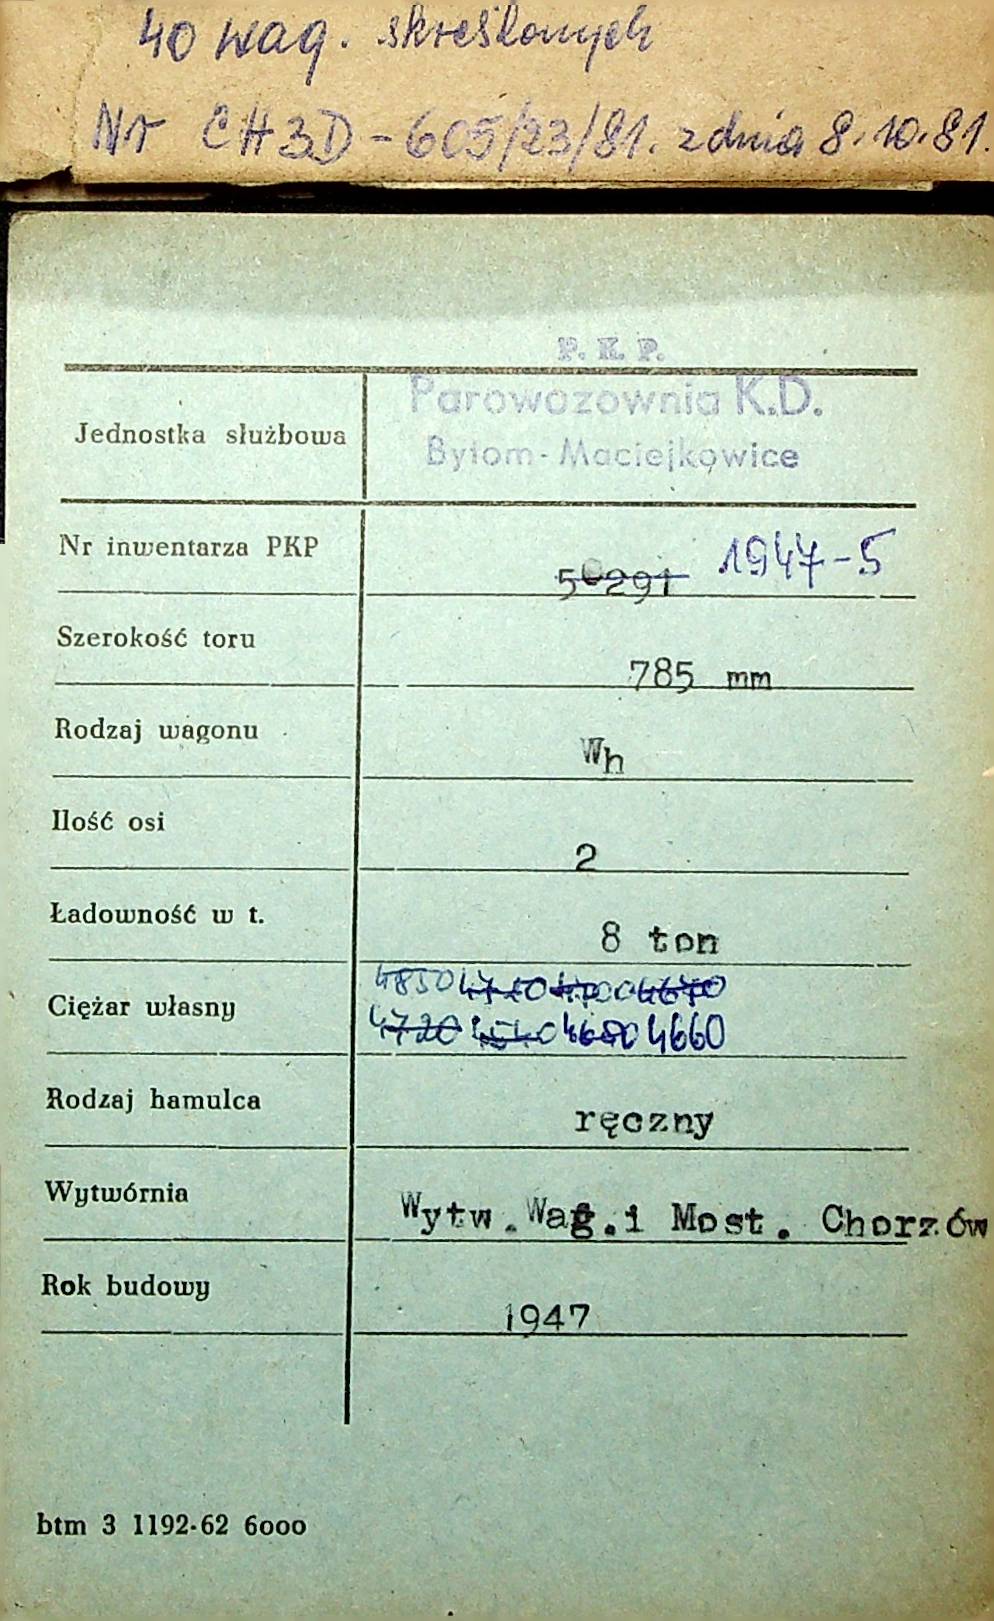 40 wag. skreślonych
Nr CH3D-605/23/81. z dnia 8.10.81.
P. K. P.
Jednostka służbowa Parowozownia K.D.
Bytom-Maciejkowice
Nr inwentarza PKP 50291 1947-5
Szerokość toru 785 mm
Rodzaj wagonu Wh
Ilość osi 2
Ładowność w t. 8 ton
Ciężar własny 4850 4670
4720 4680 4660
Rodzaj hamulca ręczny
Wytwórnia Wytw.Wag.i Most. Chorzów
Rok budowy 1947
btm 3 1192-62 6000